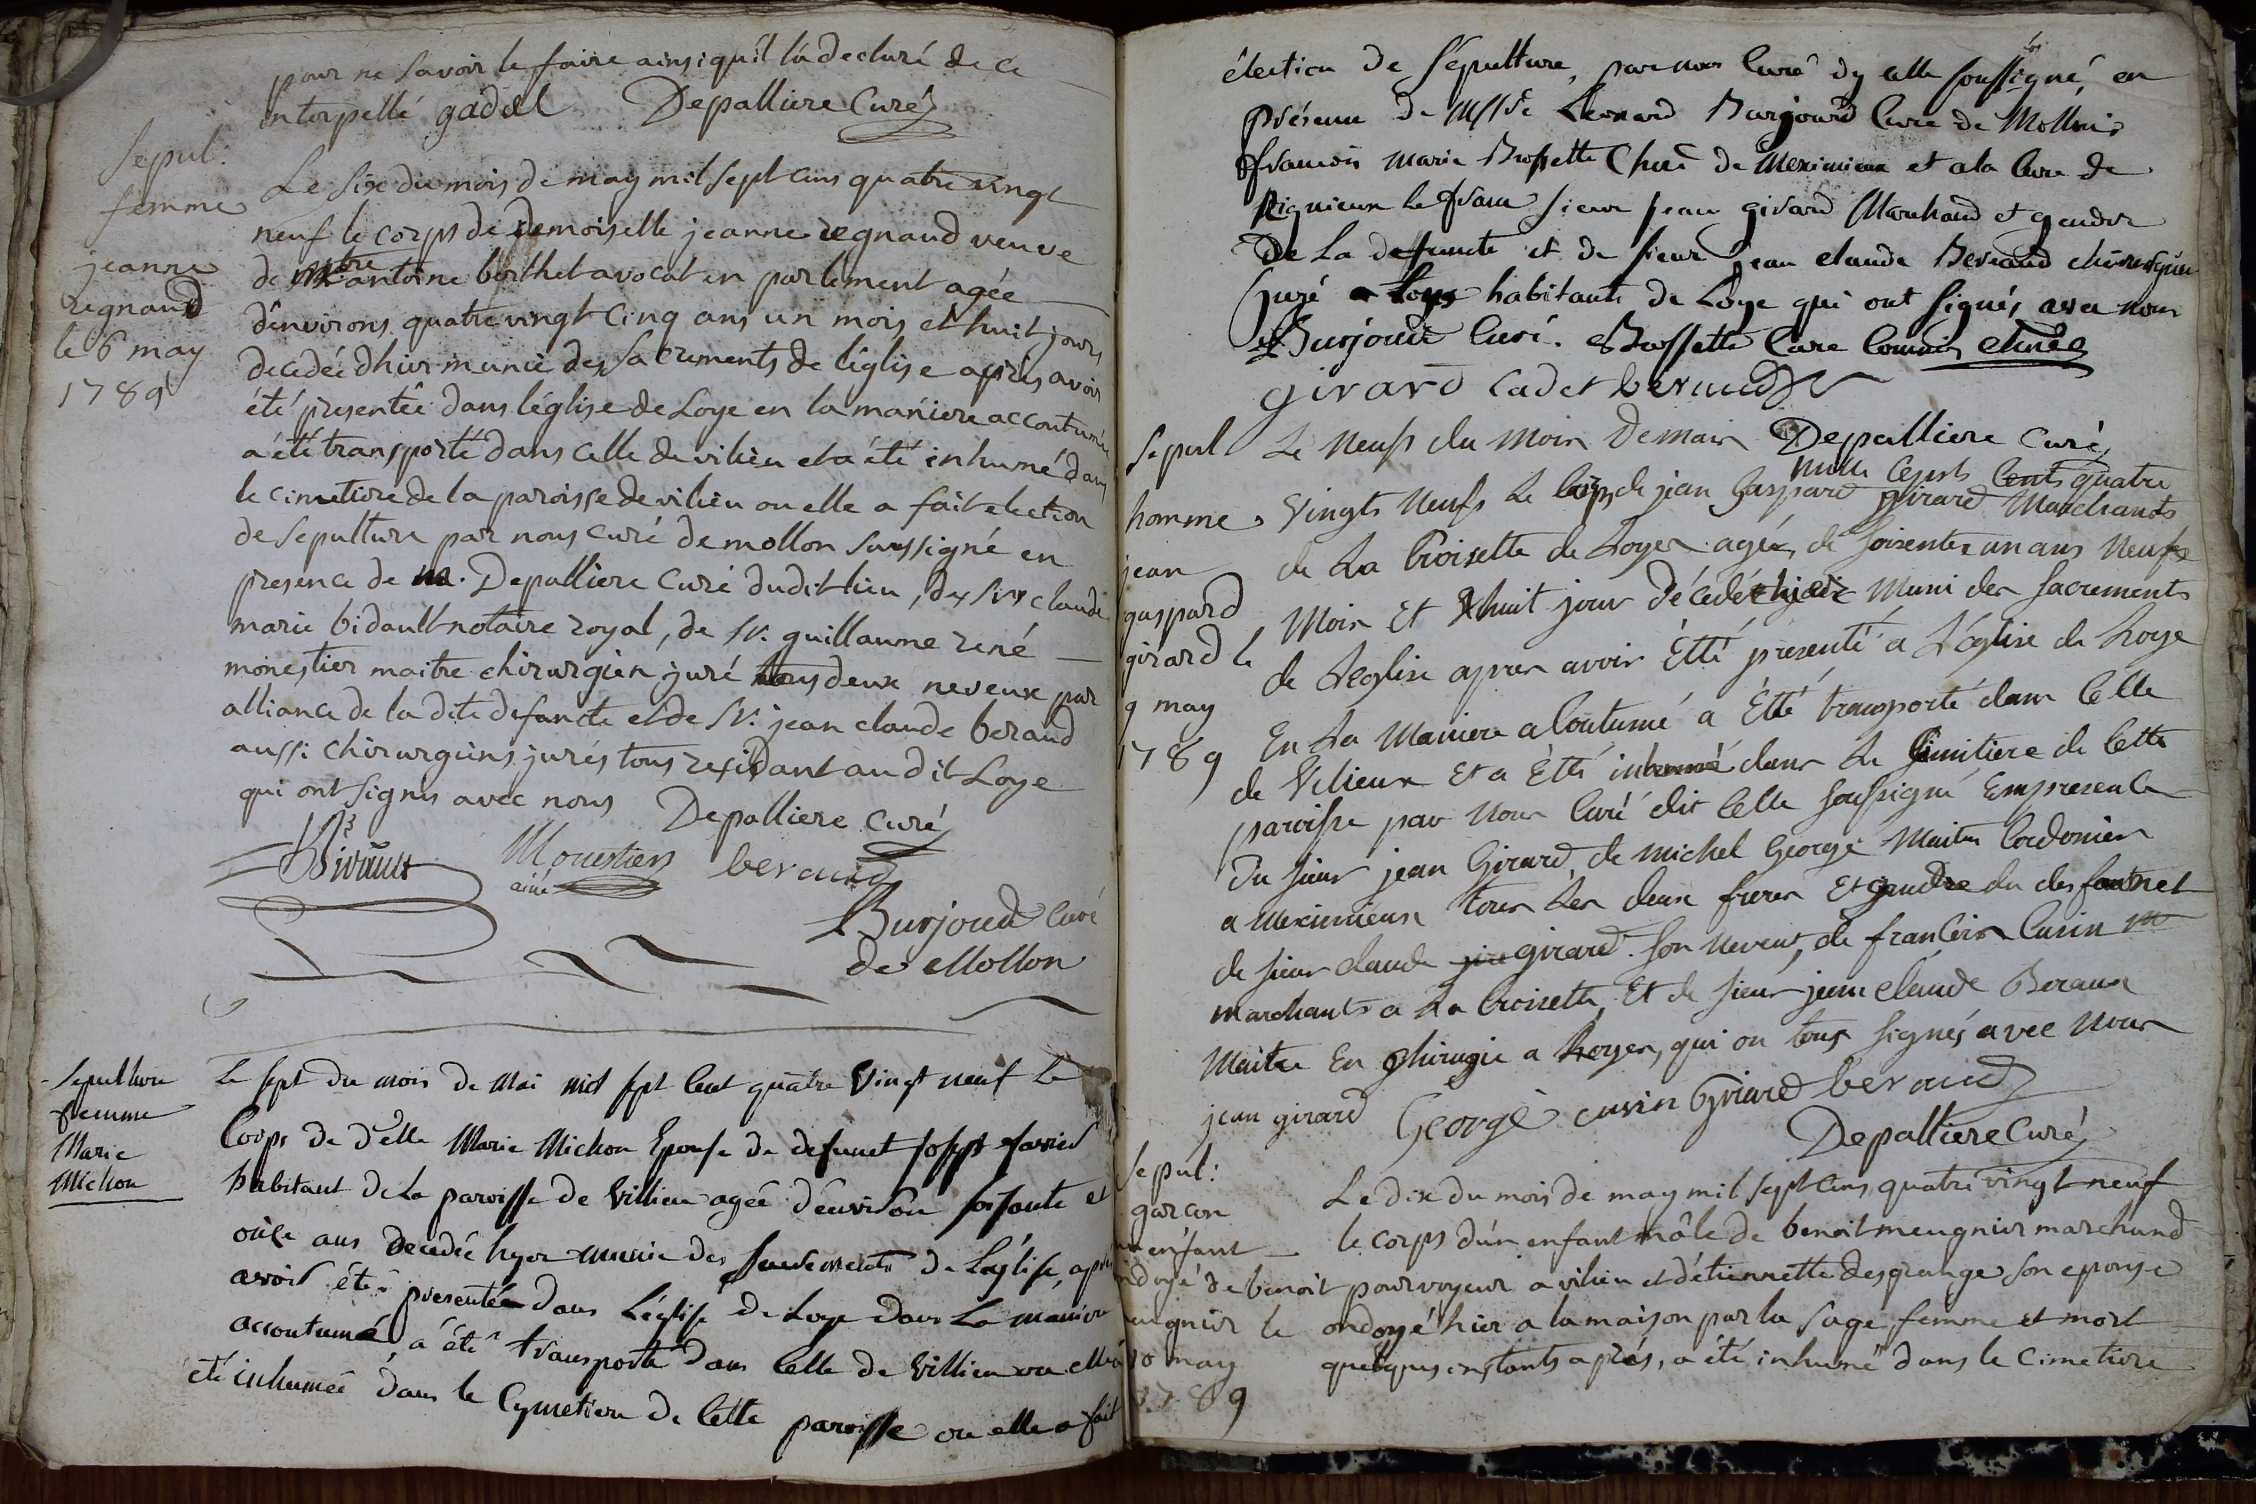 pour ne savoir le faire ainsi quil la declaré de ce
interpellé gadel Depalliere Curé
Sepul:
femme
jeanne
regnaud
le 6 may
1789
Le six du mois de may mil sept cens quatre vingt
neuf le corps de demoiselle jeanne regnaud veuve
de mtre antoine berthet avocat en parlement agée
d'environs quatre vingt cinq ans un mois et huit jours
decedée dhier munie des sacrements de l'église après avoir
été presentée dans léglise de Loye en la maniere accoutumée
a été transporté dans celle de vilieu et a été inhumé dans
le cimetiere de la paroisse de vilieu ou elle a fait election
de sepulture par nous curé de mollon soussigné en
presence de m. Depalliere curé dudit lieu, de sr claude
marie bidault notaire royal, de sr. guillaume rené
monestier maitre chirurgien juré tous deux neveux par
alliance de la dite defuncte et de sr. jean claude beraud
aussi chirurgiens jurés tous residant au dit Loye
qui ont signes avec nous Depalliere curé
Bidault Monestier beraud
ainé
Burjoud curé
de Mollon
Sepulture
femme
Marie
Michon
Le sept du mois de Mai mil sept cent quatre vingt neuf Le
Corps de d'elle Marie Michon Epouse de defunct
habitant de La paroisse de Villieu agée d'environ soisante et
onze ans decedée hyer munie des sacrements de L'église, apres
avoir été presentée dans L'église de Loye dans La maniere
accoutumé, a été transporté dans celle de Villieu ou elle a
été inhumée dans le Cymetiere de Cette paroisse ou elle a fait
élection de Sépulture, par nous Curé dy celle soussigné, en
présence de Messire Léonard Burjoud Curé de Mollon
françois marie Brossette de Meximieux et a la Cure de
Rignieux le franc sieur jean girard Marchand et gendre
De La deffuncte et de sieur jean claude Beraud chirurgien
juré a Loye habitants de Loye qui ont signés avec nous
Burjoud Curé. Brossette Cure commis
girard cadet beraud
Depalliere curé
Sepul
homme
jean
gaspard
girard le
9 may
1789
Le Neuf du Mois De mais mille Cepts Cents quatre
Vingts Neufs Le corps de jean Gaspard girard Marchants
de La Croisette de Loyes agée de soisente un ans Neufs
Mois Et huit jour décedé hier Muni des Sacrements
de L'eglise apres avoir Etté présenté a L'église de Loye
En La Maniere acoutumé a Etté transporté dans Celle
de Vilieux Et a Etté inhumé dans Le Cimitiere de Cette
paroisse par Nous Curé dit Celle soussigné Empresence
Du sieur jean Girard, de Michel George Maitre Cordonier
a Meximieux tous Les deux freres Et gendre du
de sieur claude girard son Neveut, de francois Cusin
marchants a La Croisette, Et de sieur jean claude Beraud
Maitre En Chirugie a Loyes, qui on tous signés avec Nous
jean girard George cusin Girard beraud
Depalliere Curé
Sepul:
garcon
enfant
ondoyé de benoit
meugnier le
10 may
1789
Le dix du mois de may mil sept cens quatre vingt neuf
le corps d'un enfant mâle de benoit meugnier marchand
pourvoyeur a vilieu et d'étiennette desgranges son epouse
ondoyé hier a la maison par la sage femme et mort
quelques instants aprés, a été inhumé dans le cimetiere